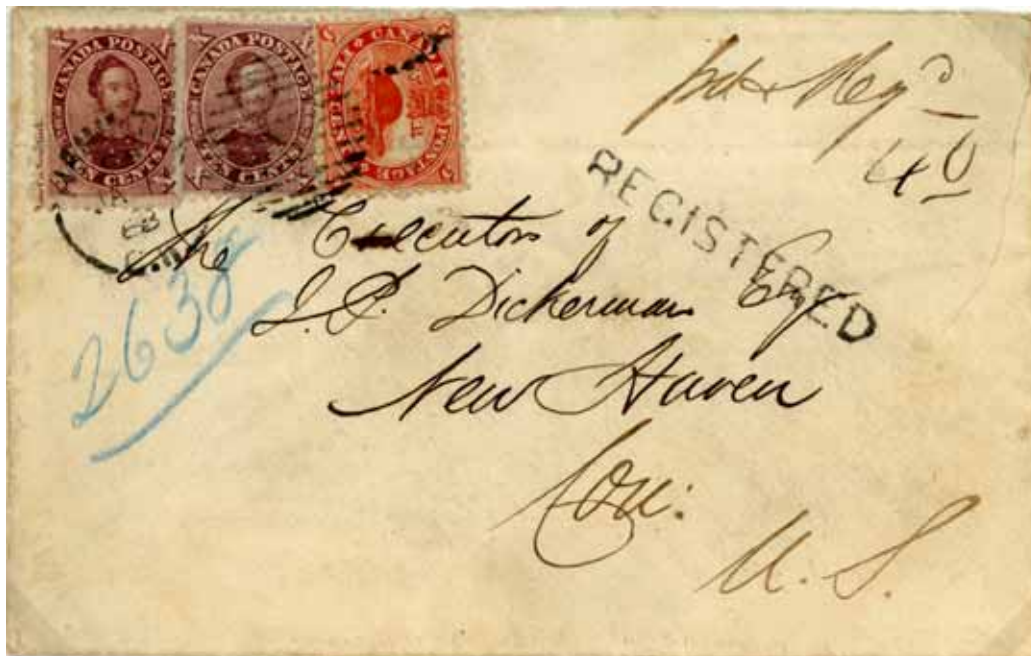 CANADA POSTAGE
TEN CENTS
CANADA POSTAGE
TEN CENTS
CANADA POSTAGE
Reg'd
REGISTERED
The Executors of
J. P. Dickerman Esq.
New Haven
Con:
U. S.
2638
68